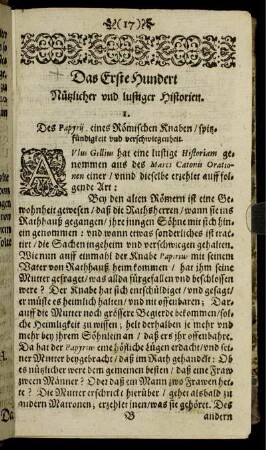 (17)
Das Erste Hundert
Nützlicher vnd lustiger Historien.
I.
Des Papyrij, eines Römischen Knaben / spitz-
fündigkeit vnd verschwiegenheit.
AVlus Gellius hat eine lustige Historiam ge-
nommen aus des Marci Catonis Oratio-
nen einer / vnnd dieselbe erzhelet auff fol-
gende Art:
Bey den alten Römern ist eine Ge-
wonheit gewesen / daß die Rathsherren / wann sie ins
Rathhauß gegangen / ihre jungen Söhne mit sich hin-
ein genommen : vnd wann etwas sonderliches ist trac-
tirt / die Sachen ingeheim vnd verschwiegen gehalten.
Wie nun auff einmahl der Knabe Papirius mit seinem
Vater von Rathhauß heim kommen / hat ihm seine
Mutter gefraget / was alldo fürgefallen vnd beschlossen
were? Der Knabe hat sich entschüldiget / vnd gesagt /
er müste es heimlich halten / vnd nit offenbaren. Dar-
auff die Mutter noch grössere Begierde bekommen / sol-
che Heimligkeit zu wissen ; helt derhalben je mehr vnd
mehr bey jhrem Söhnlein an / daß ers jhr offenbahre.
Da hat der Papyrius eine höfliche Lügen erdacht / vnd sei-
ner Mutter beygebracht / daß im Rath gehandelt: Ob
es nützlicher were dem gemeinen besten / daß eine Fraw
zween Männer? Oder daß ein Mann zwo Frawen het-
te? Die Mutter erschrickt hierüber / gehet alsbald zu
andern Matronen, erzhlet inen / was sie gehöret. Des
B
andern